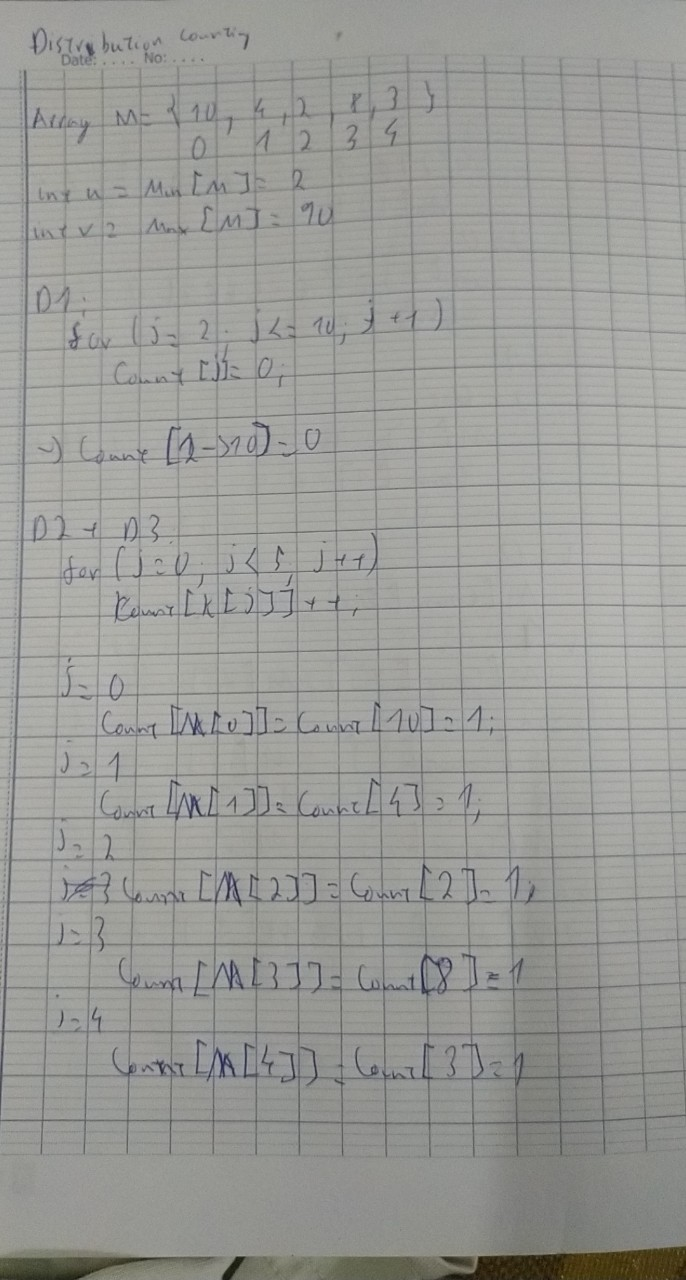 Distribution counting
Date: .... No: ....
Array M = { 10, 4, 2, 8, 3 }
0 1 2 3 4
int u = Min [M] = 2
int v = Max [M] = 10
D1:
for (j = 2; j <= 10; j ++)
Count [j] = 0;
-> Count [2->10] = 0
D2 + D3
for (j = 0; j < 5; j++)
Count [K[j]] ++;
j = 0
Count [M[0]] = Count [10] = 1;
j = 1
Count [M[1]] = Count [4] = 1;
j = 2
Count [M[2]] = Count [2] = 1;
j = 3
Count [M[3]] = Count [8] = 1
j = 4
Count [M[4]] = Count [3] = 1